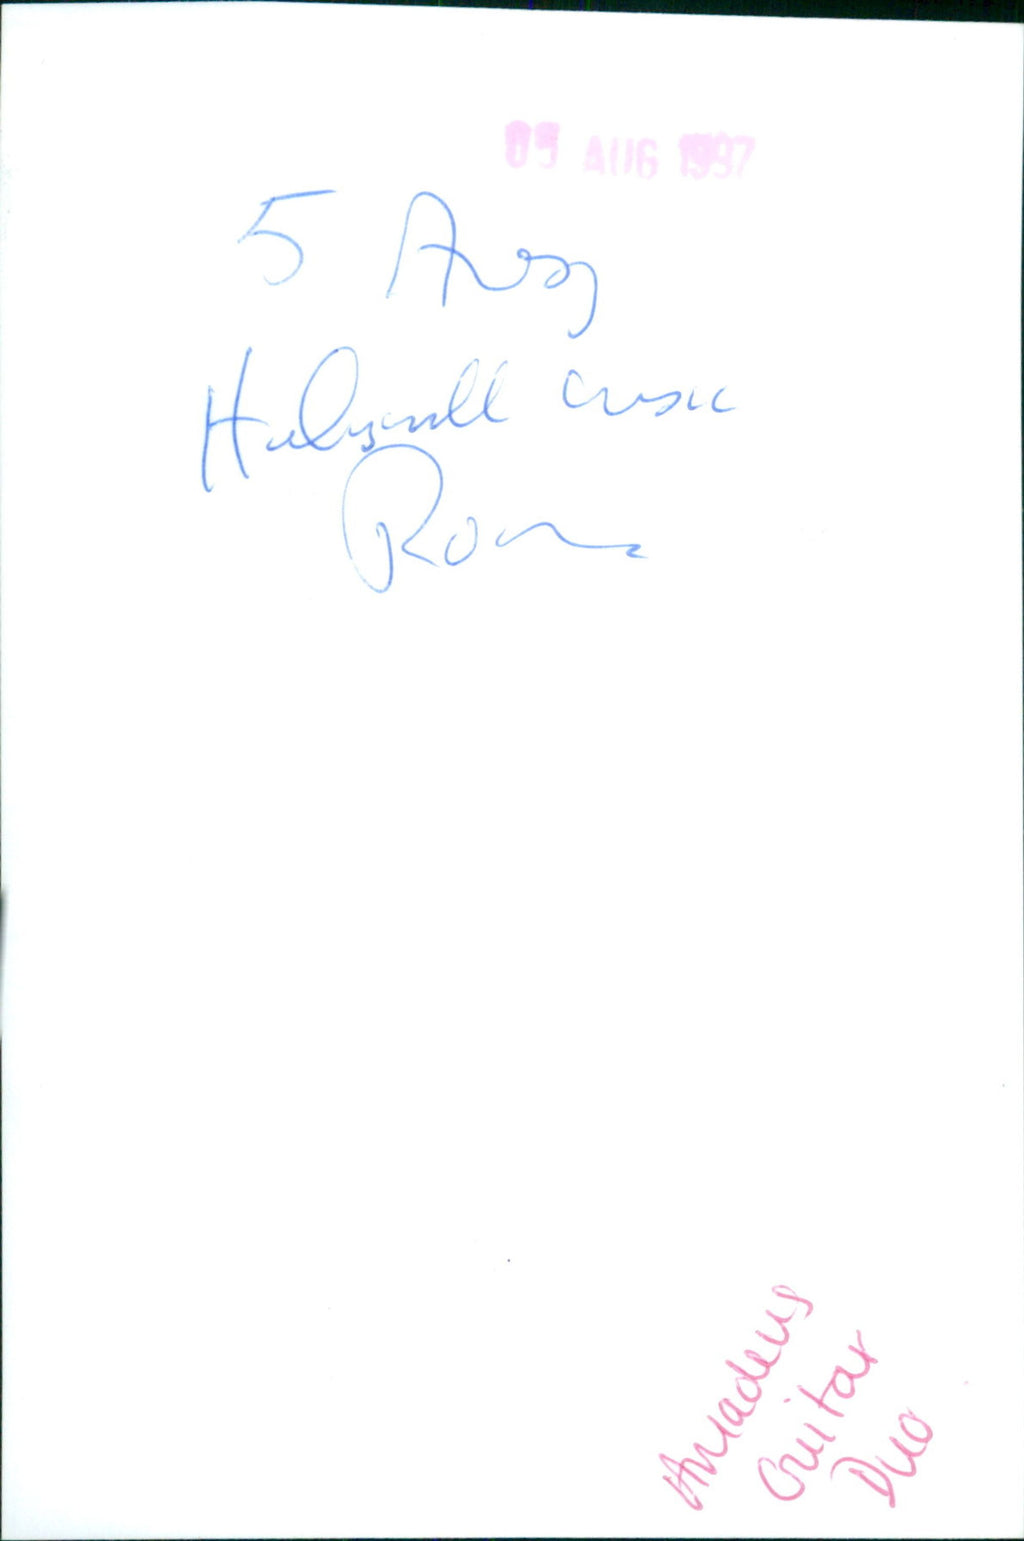 05 AUG 1997
5 Aug
Holywell Music
Room
Amadeus
Guitar
Duo